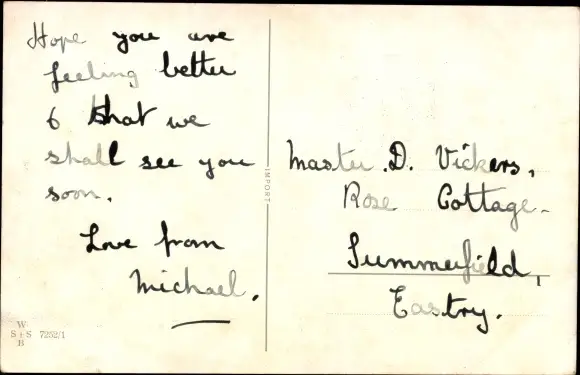 Hope you are
feeling better
& that we
shall see you
soon.
Love from
Michael.
IMPORT
Master .D. Vickers,
Rose Cottage.
Summerfield,
Eastry.
W
S+S 7252/1
B